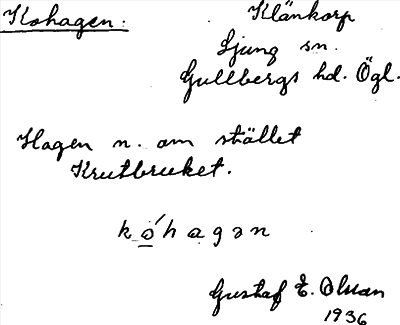 Kohagen: Klänkorp
Ljung sn.
Gullbergs hd. Ögl.
Hagen n. om stället
Krutbruket.
kó̲hagən
Gustaf E. Olsson
1936